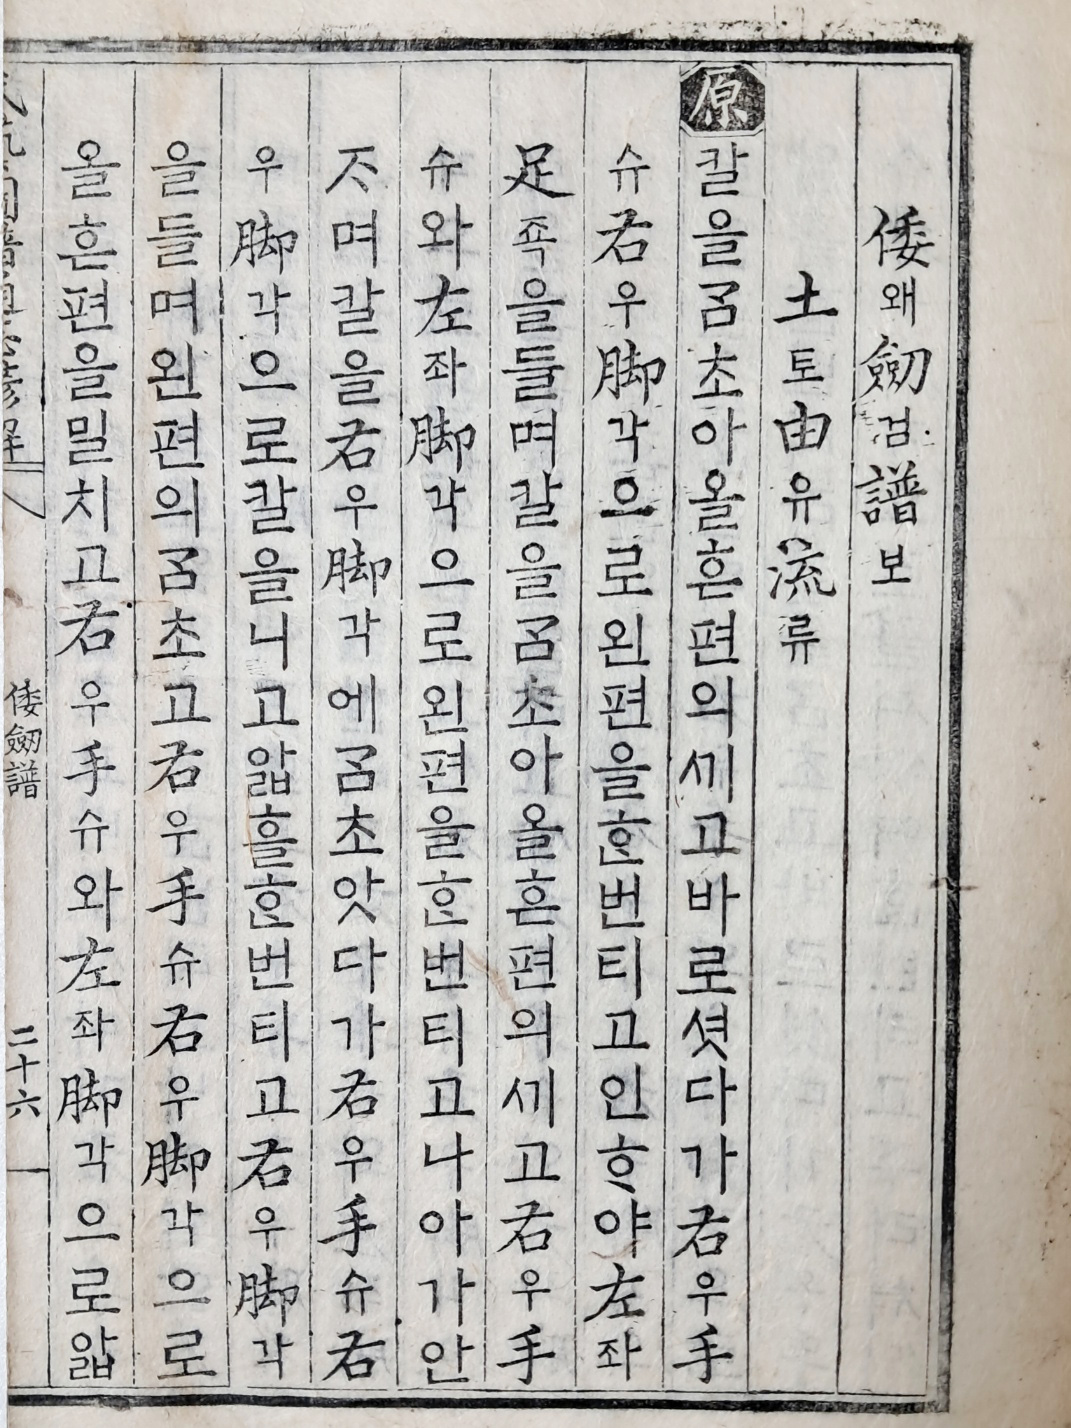 倭왜劒검譜보
土토由유流류
原 칼을ᄀᆞᆷ초아올흔편의세고바로셧다가右우手
슈右우脚각으로왼편을ᄒᆞᆫ번티고인ᄒᆞ야左좌
足족을들며칼을ᄀᆞᆷ초아올흔편의세고右우手
슈와左좌脚각으로왼편을ᄒᆞᆫ번티고나아가안
ᄌᆞ며칼을右우脚각에ᄀᆞᆷ초앗다가右우手슈右
우脚각으로칼을니고앏흘ᄒᆞᆫ번티고右우脚각
을들며왼편의ᄀᆞᆷ초고右우手슈右우脚각으로
올흔편을밀치고右우手슈와左좌脚각으로앏
倭劒譜 二十六